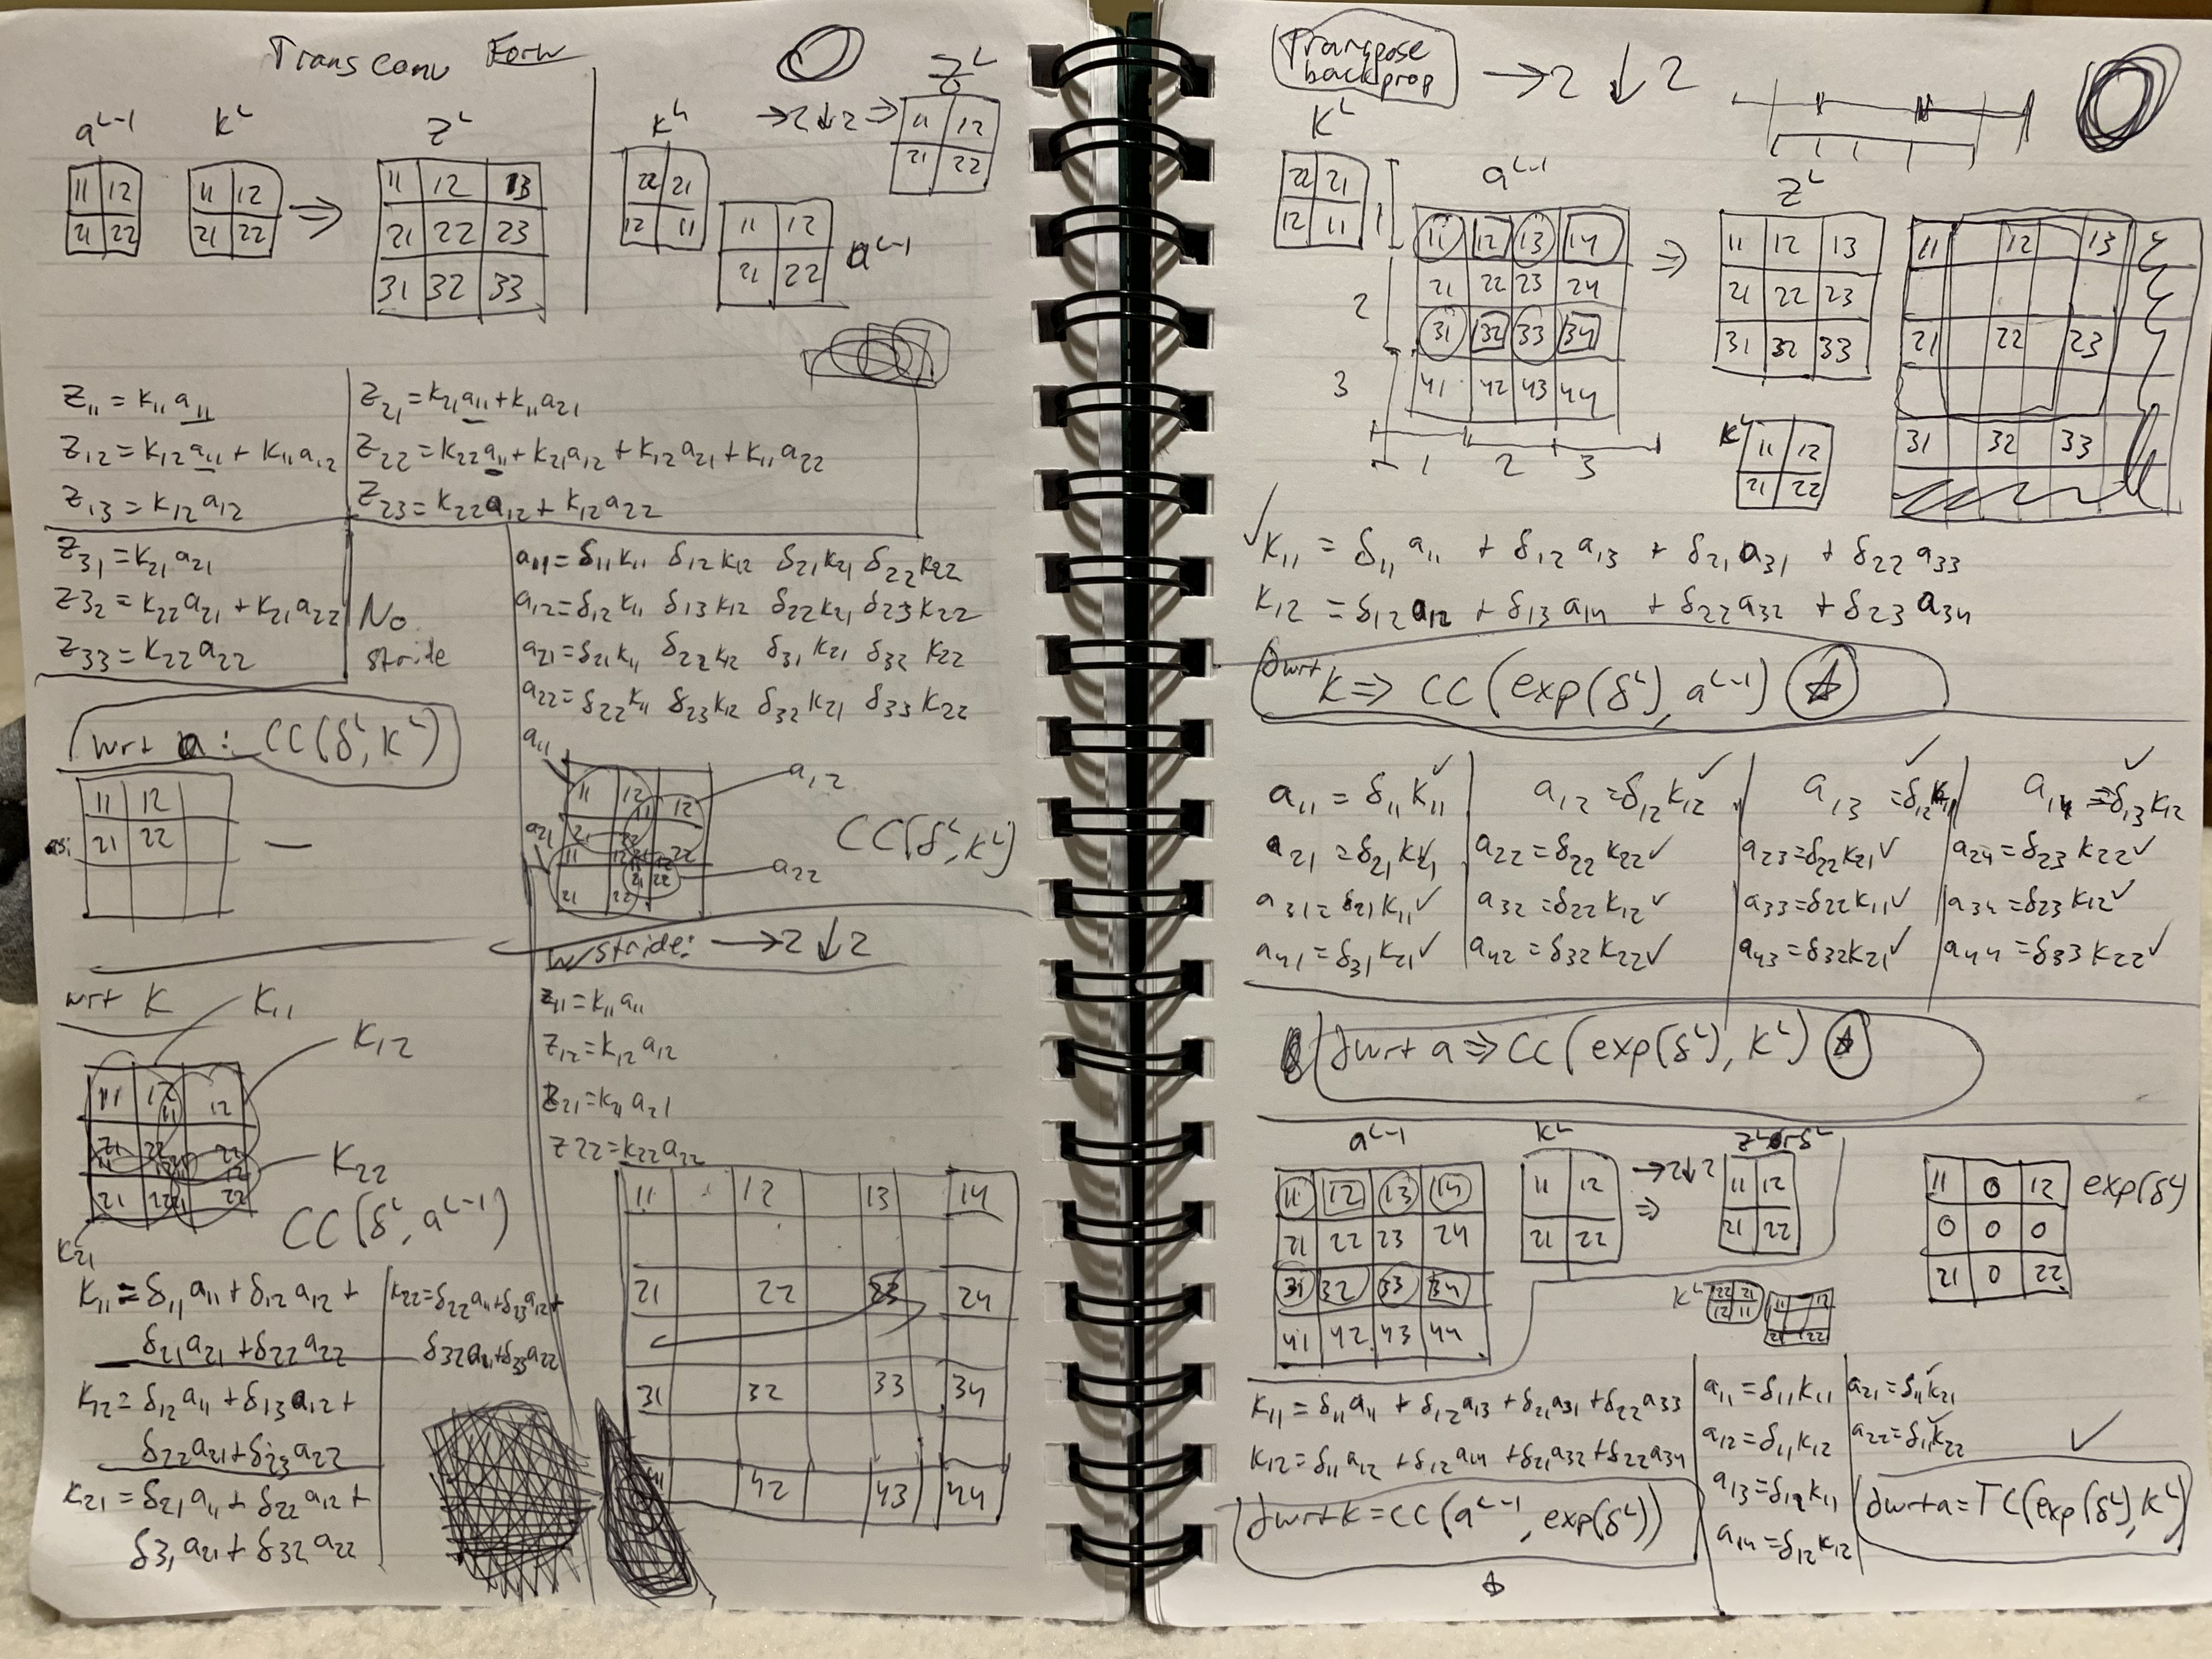 Trans Conv Forw
a^L-1 K^L Z^L
11 12
21 22
11 12
21 22
⇒
11 12 13
21 22 23
31 32 33
K^L →2↓2 ⇒ Z^L
22 21
12 11
11 12
21 22
a^L-1
11 12
21 22
Z11 = K11 a11
Z12 = K12 a11 + K11 a12
Z13 = K12 a12
Z21 = K21 a11 + K11 a21
Z22 = K22 a11 + K21 a12 + K12 a21 + K11 a22
Z23 = K22 a12 + K12 a22
Z31 = K21 a21
Z32 = K22 a21 + K21 a22
Z33 = K22 a22
No
stride
a11 = δ11 K11 δ12 K12 δ21 K21 δ22 K22
a12 = δ12 K11 δ13 K12 δ22 K21 δ23 K22
a21 = δ21 K11 δ22 K12 δ31 K21 δ32 K22
a22 = δ22 K11 δ23 K12 δ32 K21 δ33 K22
wrt a: CC(δ^L, K^L)
11 12
21 22
a11
a12
a21
a22
CC(δ^L, K^L)
wrt K
K11
K12
K22
K21
CC(δ^L, a^L-1)
K11 = δ11 a11 + δ12 a12 +
δ21 a21 + δ22 a22
K12 = δ12 a11 + δ13 a12 +
δ22 a21 + δ23 a22
K21 = δ21 a11 + δ22 a12 +
δ31 a21 + δ32 a22
K22 = δ22 a11 + δ23 a12 +
δ32 a21 + δ33 a22
w/stride: →2 ↓2
Z11 = K11 a11
Z12 = K12 a12
Z21 = K21 a21
Z22 = K22 a22
11 12 13 14
21 22 23 24
31 32 33 34
42 43 44
Transpose
backprop
→2 ↓2
K^L
22 21
12 11
a^L-1
11 12 13 14
21 22 23 24
31 32 33 34
41 42 43 44
1
2
3
1 2 3
⇒
Z^L
11 12 13
21 22 23
31 32 33
K^L
11 12
21 22
11 12 13
21 22 23
31 32 33
✓ K11 = δ11 a11 + δ12 a13 + δ21 a31 + δ22 a33
K12 = δ12 a12 + δ13 a14 + δ22 a32 + δ23 a34
∂wrt K ⇒ CC(exp(δ^L), a^L-1) ☆
a11 = δ11 K11 ✓ a12 = δ12 K12 ✓ a13 = δ12 K11 ✓ a14 = δ13 K12 ✓
a21 = δ21 K21 ✓ a22 = δ22 K22 ✓ a23 = δ22 K21 ✓ a24 = δ23 K22 ✓
a31 = δ21 K11 ✓ a32 = δ22 K12 ✓ a33 = δ22 K11 ✓ a34 = δ23 K12 ✓
a41 = δ31 K21 ✓ a42 = δ32 K22 ✓ a43 = δ32 K21 ✓ a44 = δ33 K22 ✓
∂wrt a ⇒ CC(exp(δ^L), K^L) ☆
a^L-1 K^L Z^L or δ^L
11 12 13 14
21 22 23 24
31 32 33 34
41 42 43 44
11 12
21 22
→2↓2
⇒
11 12
21 22
11 0 12
0 0 0
21 0 22
exp(δ^L)
K^L
22 21
12 11
11 12
21 22
K11 = δ11 a11 + δ12 a13 + δ21 a31 + δ22 a33
K12 = δ11 a12 + δ12 a14 + δ21 a32 + δ22 a34
∂wrt K = CC(a^L-1, exp(δ^L))
☆
a11 = δ11 K11
a12 = δ11 K12
a13 = δ12 K11
a14 = δ12 K12
a21 = δ11 K21 ✓
a22 = δ11 K22 ✓
∂wrt a = TC(exp(δ^L), K^L)